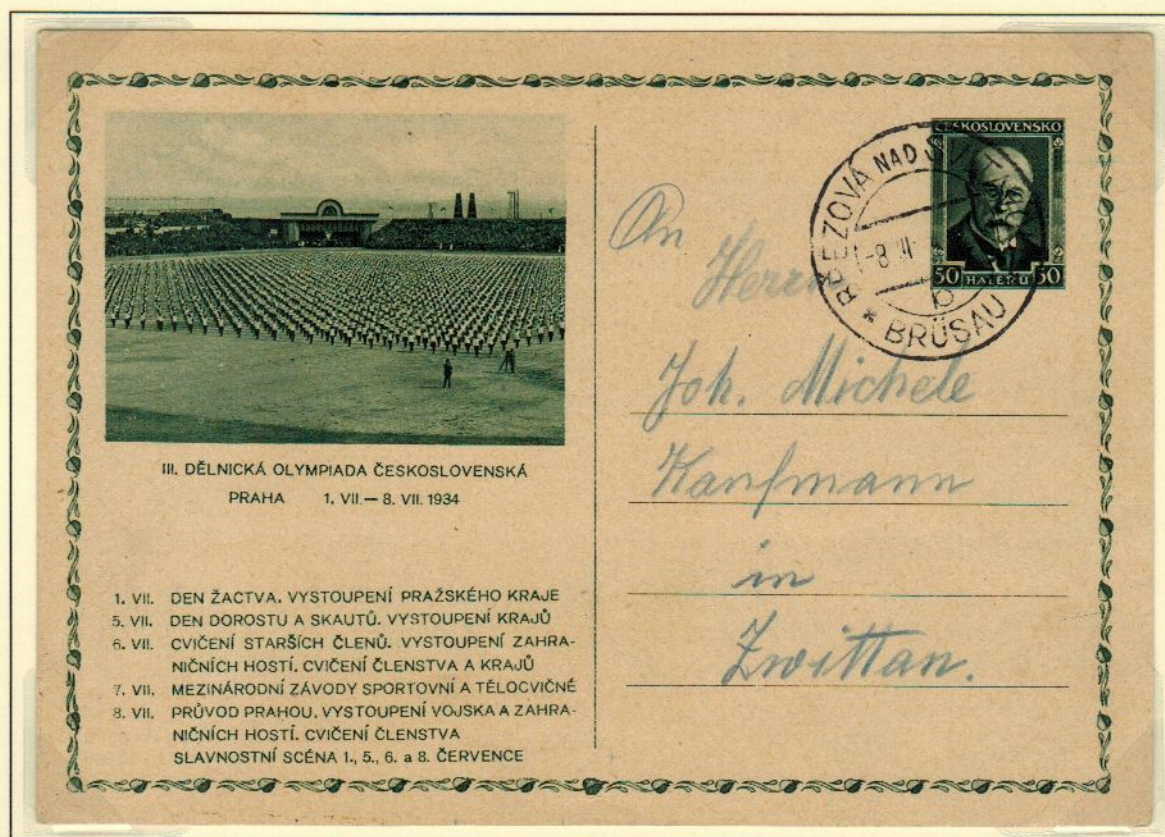 III. DĚLNICKÁ OLYMPIADA ČESKOSLOVENSKÁ
PRAHA 1. VII.— 8. VII. 1934
1. VII. DEN ŽACTVA. VYSTOUPENÍ PRAŽSKÉHO KRAJE
5. VII. DEN DOROSTU A SKAUTŮ. VYSTOUPENÍ KRAJŮ
6. VII. CVIČENÍ STARŠÍCH ČLENŮ. VYSTOUPENÍ ZAHRA-
NIČNÍCH HOSTÍ. CVIČENÍ ČLENSTVA A KRAJŮ
7. VII. MEZINÁRODNÍ ZÁVODY SPORTOVNÍ A TĚLOCVIČNÉ
8. VII. PRŮVOD PRAHOU. VYSTOUPENÍ VOJSKA A ZAHRA-
NIČNÍCH HOSTÍ. CVIČENÍ ČLENSTVA
SLAVNOSTNÍ SCÉNA 1., 5., 6. a 8. ČERVENCE
ČESKOSLOVENSKO
50 HALÉŘŮ 50
BŘEZOVÁ NAD
b
* BRÜSAU
An
Herrn
Joh. Michele
Kaufmann
in
Zwittan.